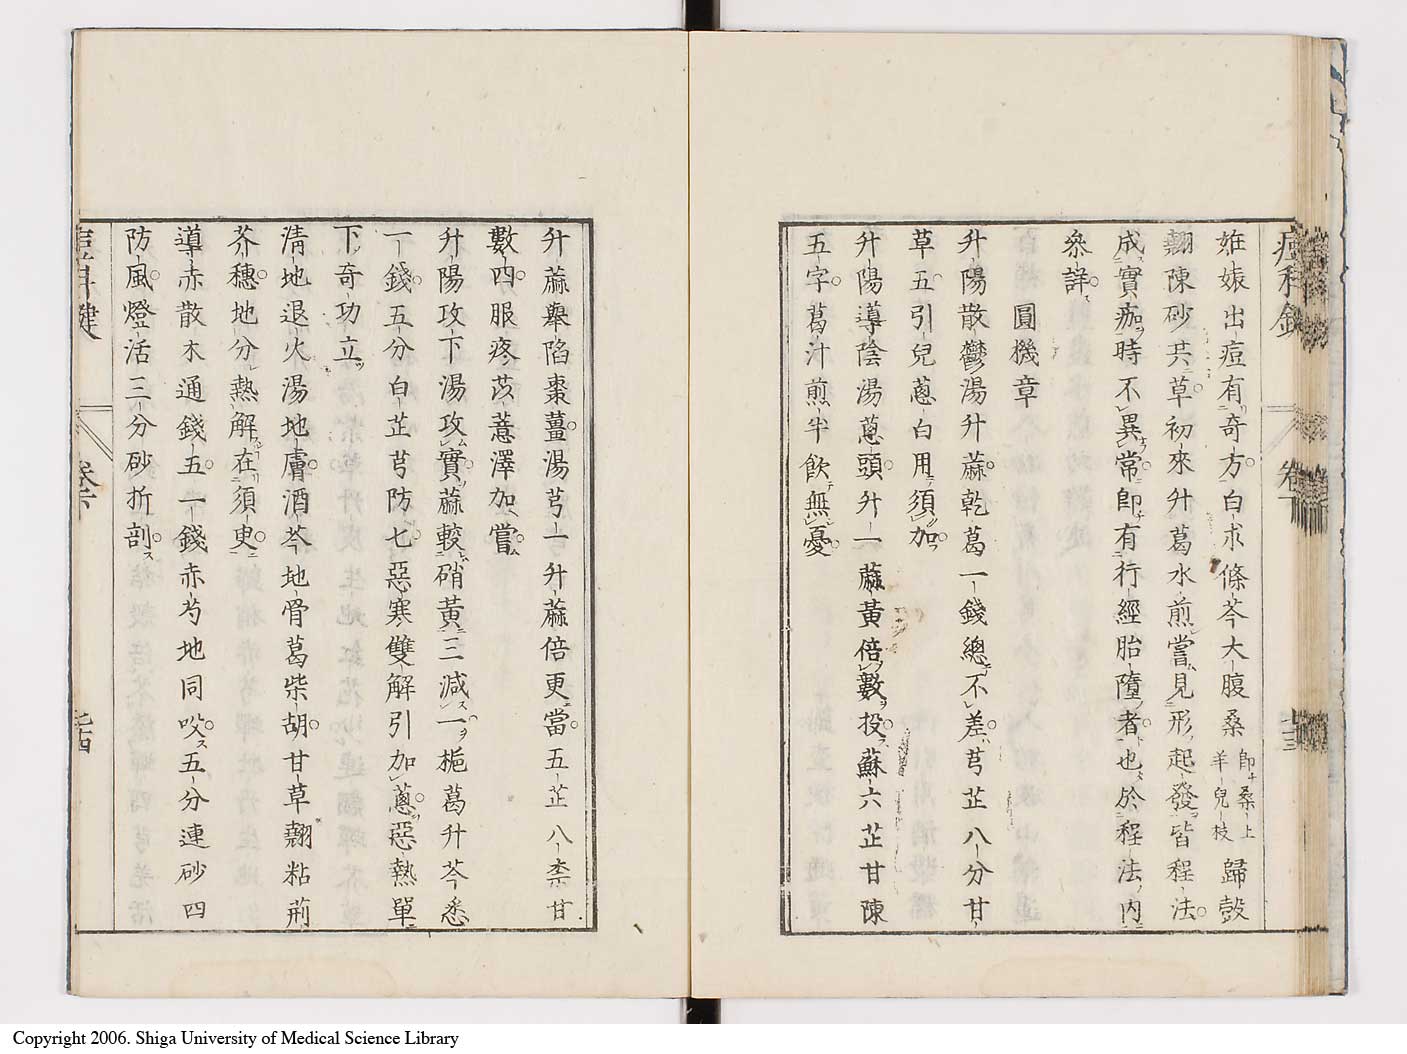 痘科鍵 卷下 七十三
妊娠出痘有奇方白朮條芩大腹桑
即桑上
羊兒枝
歸殼
翹陳砂共草初來升葛水煎嘗見形起發皆程法
成實痂時不異常即有行經胎墮者也於程法內
叅詳
圓機章
升陽散鬱湯升蔴乾葛一錢總不差芎芷八分甘
草五引兒蔥白用須加
升陽導陰湯蔥頭升一蔴黃倍數投蘇六芷甘陳
五字葛汁煎半飲無憂
升蔴舉陷棗薑湯芎一升蔴倍更當五芷八柰甘
數四服疼苡薏澤加嘗
升陽攻下湯攻實蔴較硝黃三減一梔葛升芩悉
一錢五分白芷芎防七惡寒雙解引加蔥惡熱單
下奇功立
清地退火湯地膚酒芩地骨葛柴胡甘草翹粘荊
芥穗地分熱解在須臾
導赤散木通錢五一錢赤芍地同咬五分連砂四
防風燈活三分砂折剖
痘科鍵 卷下 七十四
Copyright 2006. Shiga University of Medical Science Library